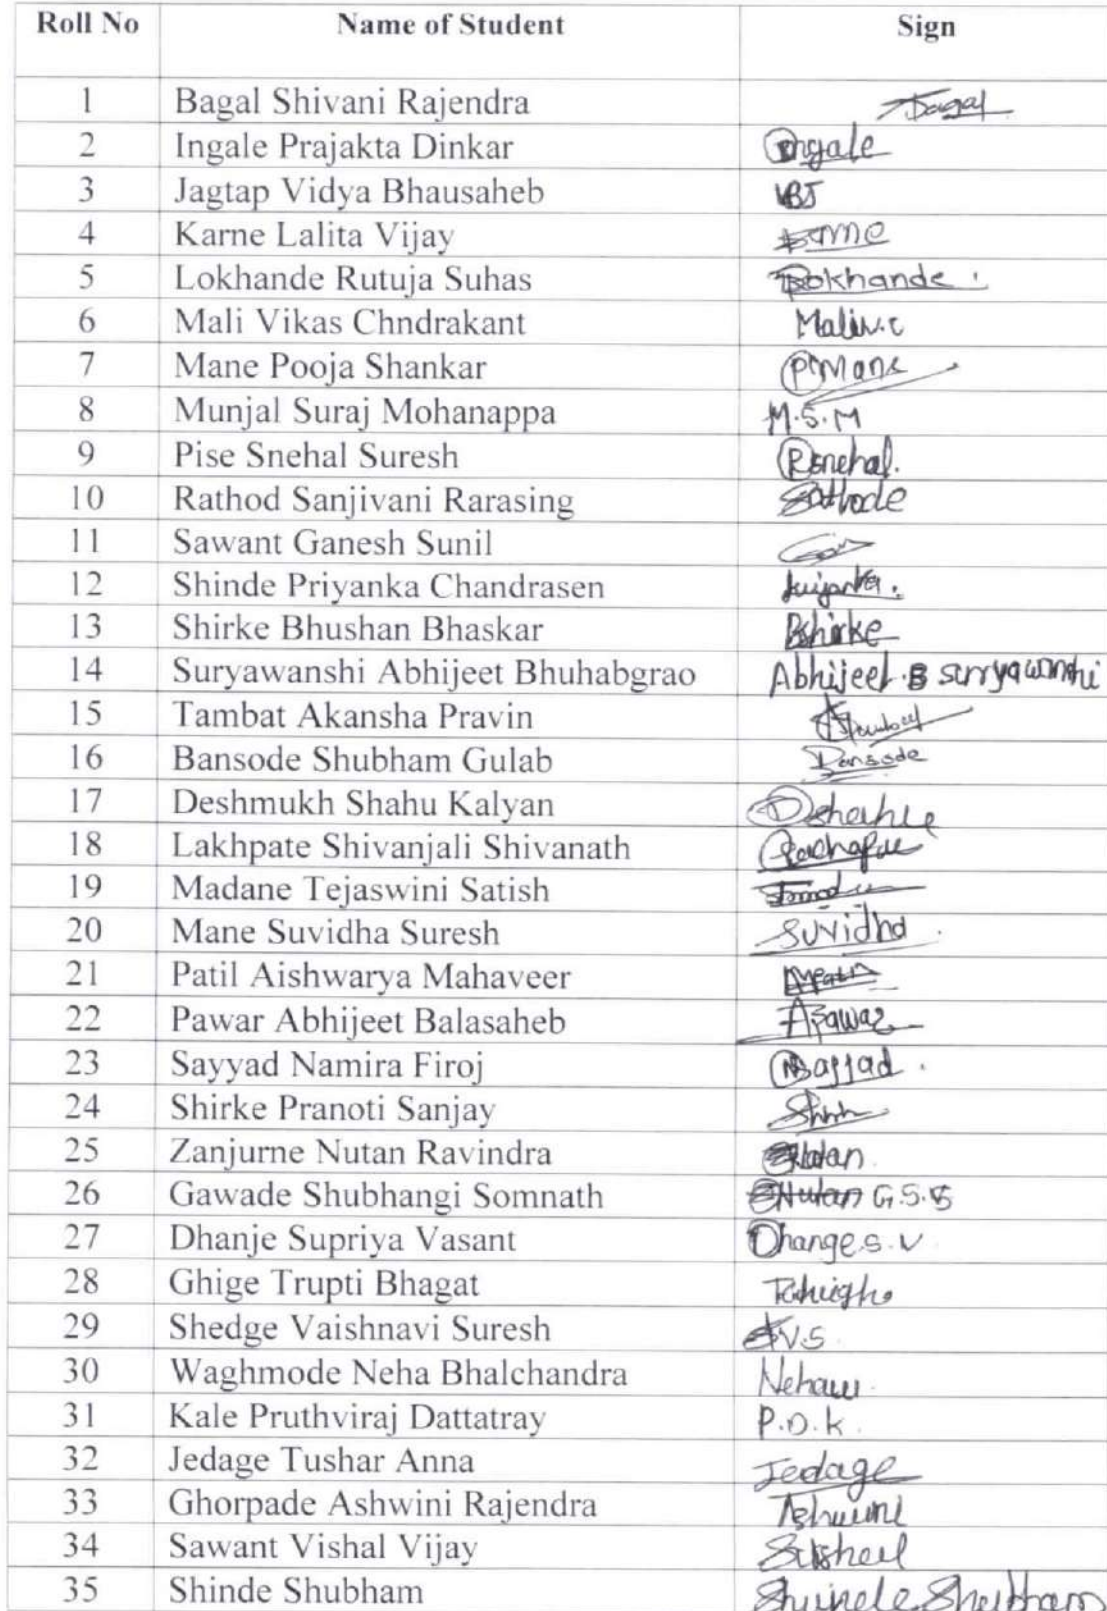 Roll No Name of Student Sign
1 Bagal Shivani Rajendra Bagal
2 Ingale Prajakta Dinkar Ingale
3 Jagtap Vidya Bhausaheb VBJ
4 Karne Lalita Vijay
5 Lokhande Rutuja Suhas Lokhande
6 Mali Vikas Chndrakant Mali V.C
7 Mane Pooja Shankar PMane
8 Munjal Suraj Mohanappa M.S.M
9 Pise Snehal Suresh PSnehal.
10 Rathod Sanjivani Rarasing
11 Sawant Ganesh Sunil
12 Shinde Priyanka Chandrasen
13 Shirke Bhushan Bhaskar BShirke
14 Suryawanshi Abhijeet Bhuhabgrao Abhijeet B suryawanshi
15 Tambat Akansha Pravin
16 Bansode Shubham Gulab Bansode
17 Deshmukh Shahu Kalyan
18 Lakhpate Shivanjali Shivanath
19 Madane Tejaswini Satish
20 Mane Suvidha Suresh Suvidha
21 Patil Aishwarya Mahaveer
22 Pawar Abhijeet Balasaheb APawar
23 Sayyad Namira Firoj
24 Shirke Pranoti Sanjay
25 Zanjurne Nutan Ravindra
26 Gawade Shubhangi Somnath G.S.S
27 Dhanje Supriya Vasant Dhange.s.v
28 Ghige Trupti Bhagat
29 Shedge Vaishnavi Suresh V.S
30 Waghmode Neha Bhalchandra
31 Kale Pruthviraj Dattatray P.D.K.
32 Jedage Tushar Anna Jedage
33 Ghorpade Ashwini Rajendra Ashwini
34 Sawant Vishal Vijay
35 Shinde Shubham Shinde Shubham